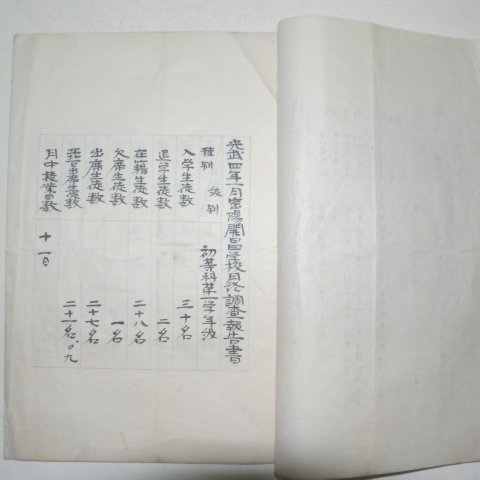 光武四年一月密陽開昌学校月終調査報告書
種別 級別 初等科第一学年級
入学生徒数 三十名
退学生徒数 二名
在籍生徒数 二十八名
欠席生徒数 一名
出席生徒数 二十七名
出席生徒数 二十一名〇九
月中授業日数 十一日